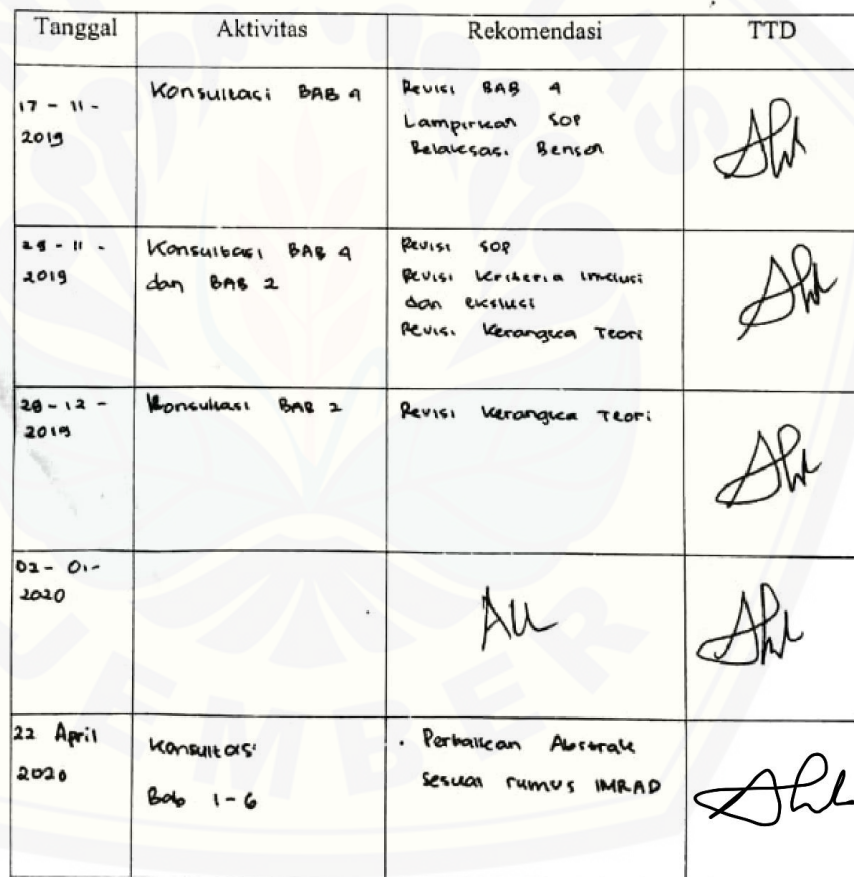 Tanggal Aktivitas Rekomendasi TTD
17 - 11 -
2019
Konsultasi BAB 4
Revisi BAB 4
Lampirkan SOP
Relaksasi Benson
- 11 -
2019
Konsultasi BAB 4
dan BAB 2
Revisi SOP
Revisi kriteria inklusi
dan ekslusi
Revisi Kerangka Teori
28 - 12 -
2019
Konsultasi BAB 2
Revisi Kerangka Teori
02 - 01 -
2020
22 April
2020
Konsultasi
Bab 1 - 6
. Perbaikan Abstrak
Sesuai rumus IMRAD
JEMBER